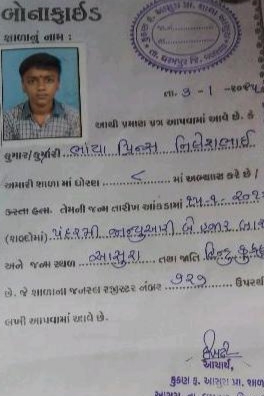 બોનાફાઇડ
શાળાનું નામ :
તા. ૩ - ૧ - ૨૦૨૫
આથી પ્રમાણ પત્ર આપવામાં આવે છે કે
કુમાર/કુમારી ભાંયા પ્રિન્સ નિલેશભાઈ
અમારી શાળા માં ધોરણ ૮ માં અભ્યાસ કરે છે /
કરતા હતા. તેમની જન્મ તારીખ આંકડામાં ૧૫-૧-૨૦૧૨
(શબ્દોમાં) પંદરમી જાન્યુઆરી બે હજાર બાર
અને જન્મ સ્થળ આસુરા તથા જાતિ હિન્દુ
છે. જે શાળાના જનરલ રજીસ્ટર નંબર ૧૨૭ ઉપરથી
લખી આપવામાં આવે છે.
આચાર્ય,
કુકણા ફ. આસુરા પ્રા. શાળા